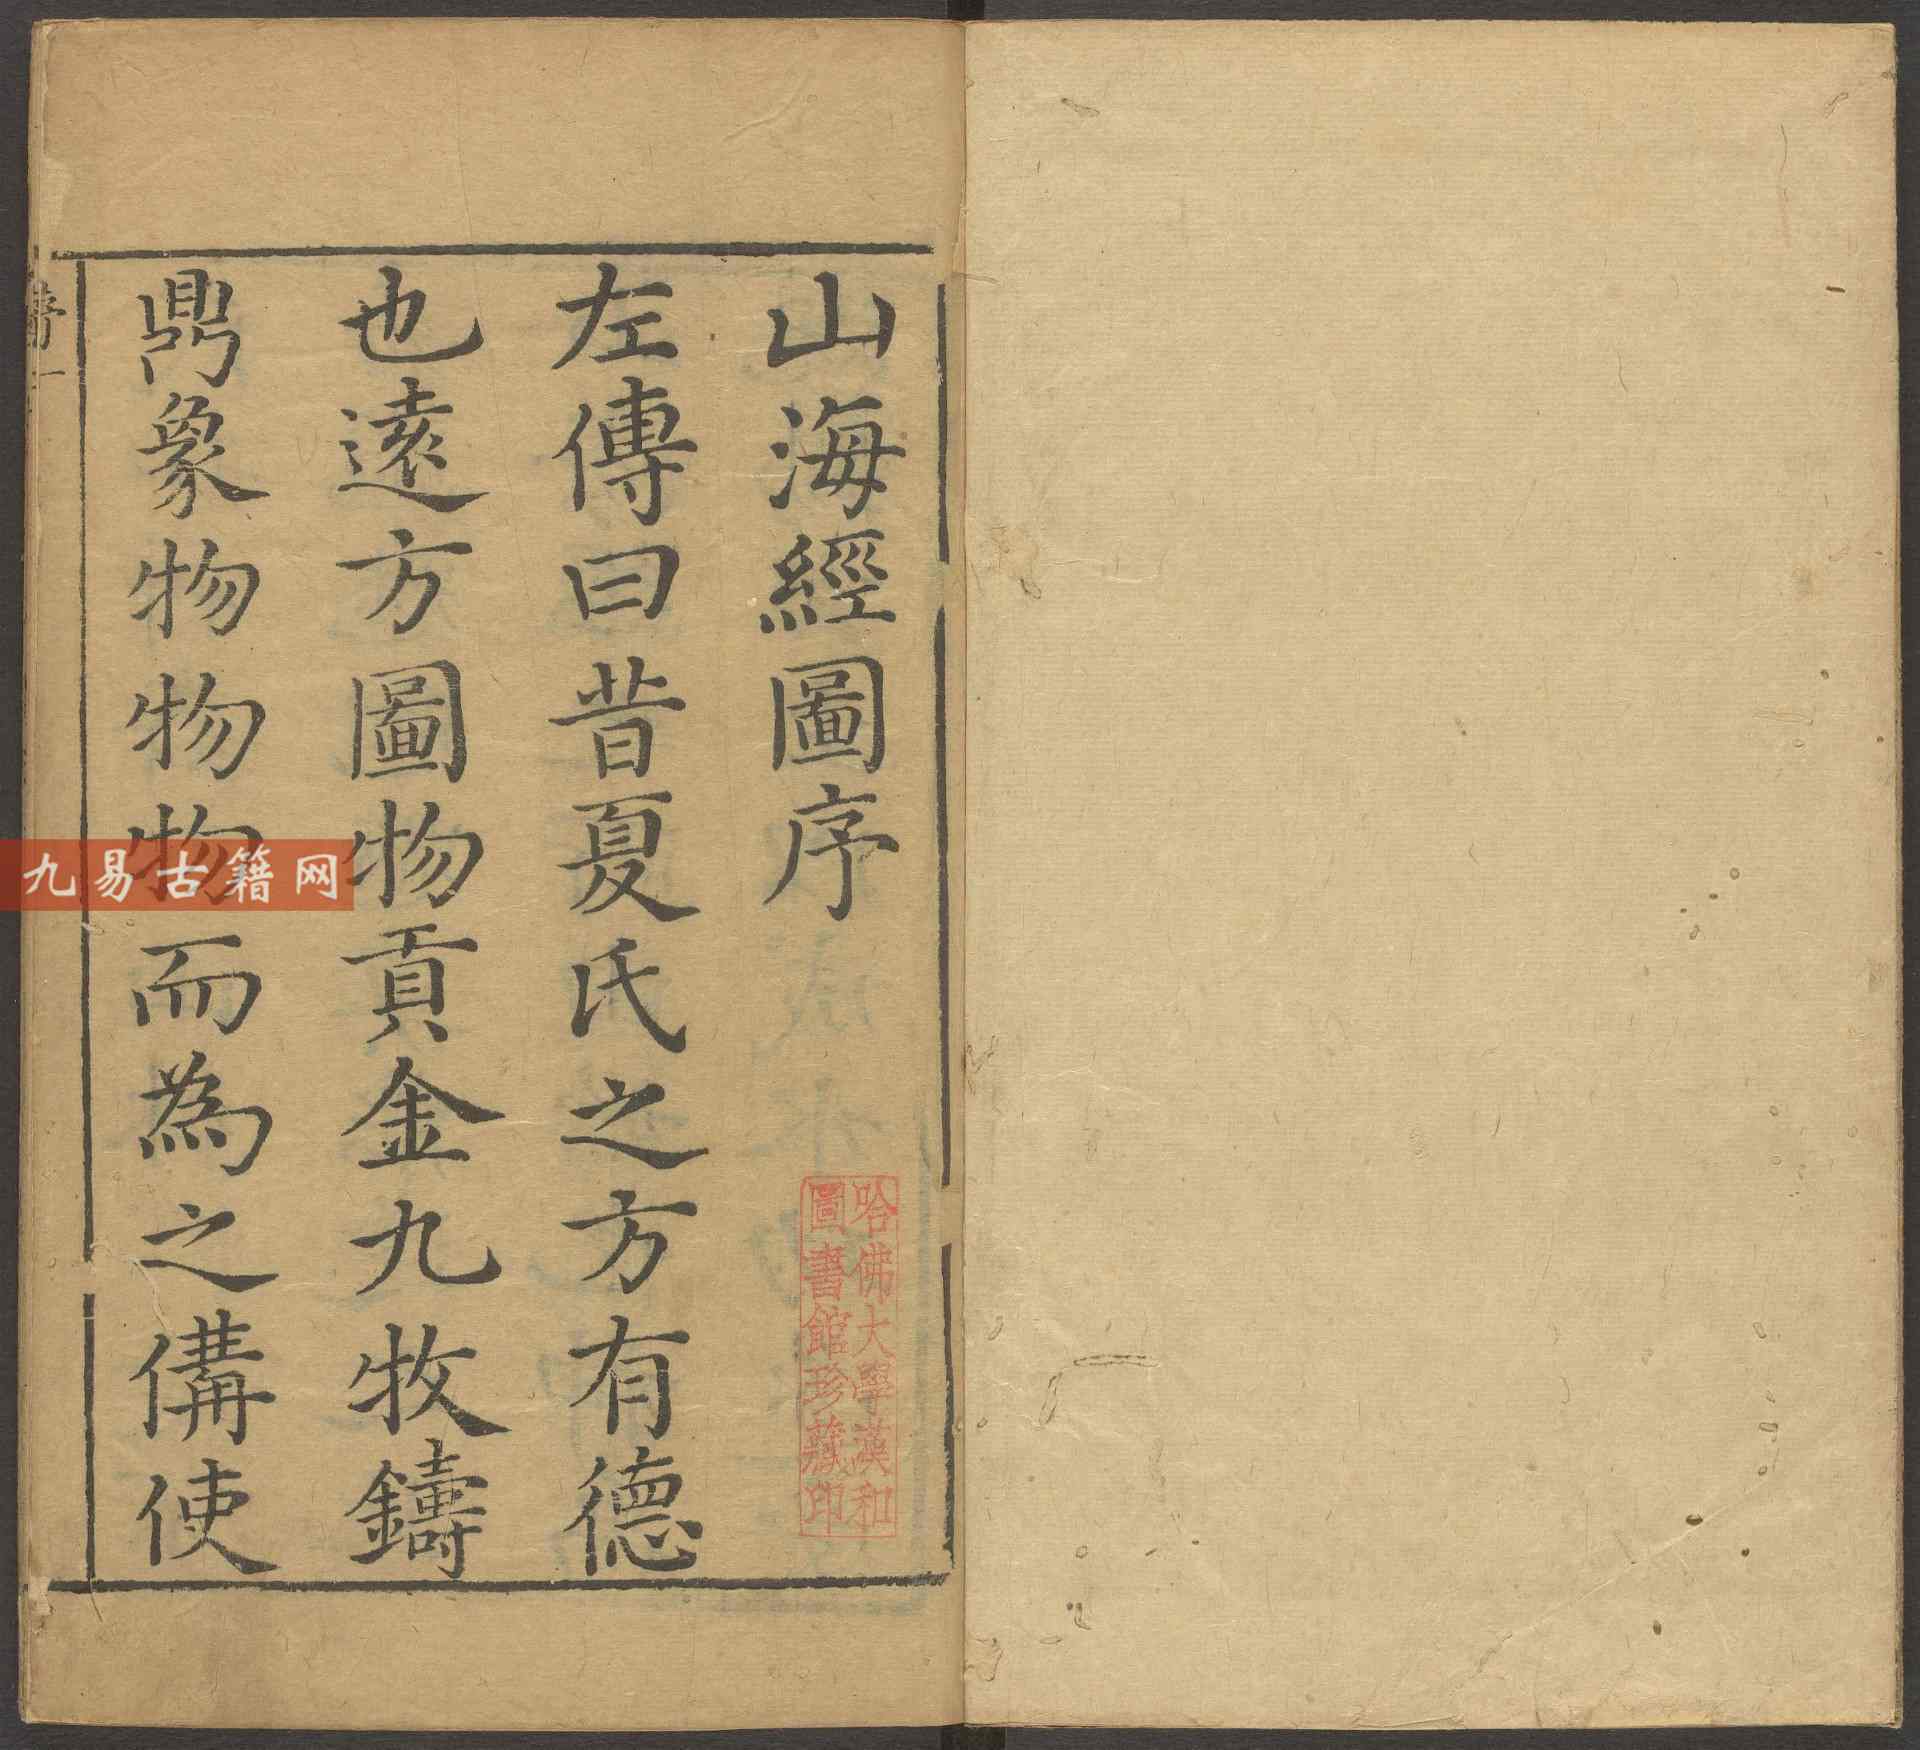 山海經圖序
左傳曰昔夏氏之方有德
也遠方圖物貢金九牧鑄
鼎象物物物而為之備使
哈佛大學漢和
圖書館珍藏印
九易古籍网